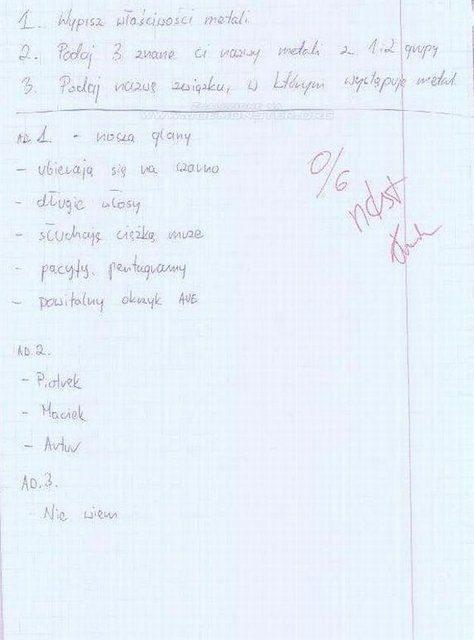 1. Wypisz właściwości metali
2. Podaj 3 znane ci nazwy metali z 1 i 2 grupy
3. Podaj nazwę związku, w którym występuje metal
AD. 1. - noszą glany
- ubierają się na czarno
- długie włosy
- słuchają ciężką muze
- pacyfy, pentagramy
- powitalny okrzyk AVE
0/6
ndst
AD. 2.
- Piotrek
- Maciek
- Artur
AD. 3.
Nie wiem